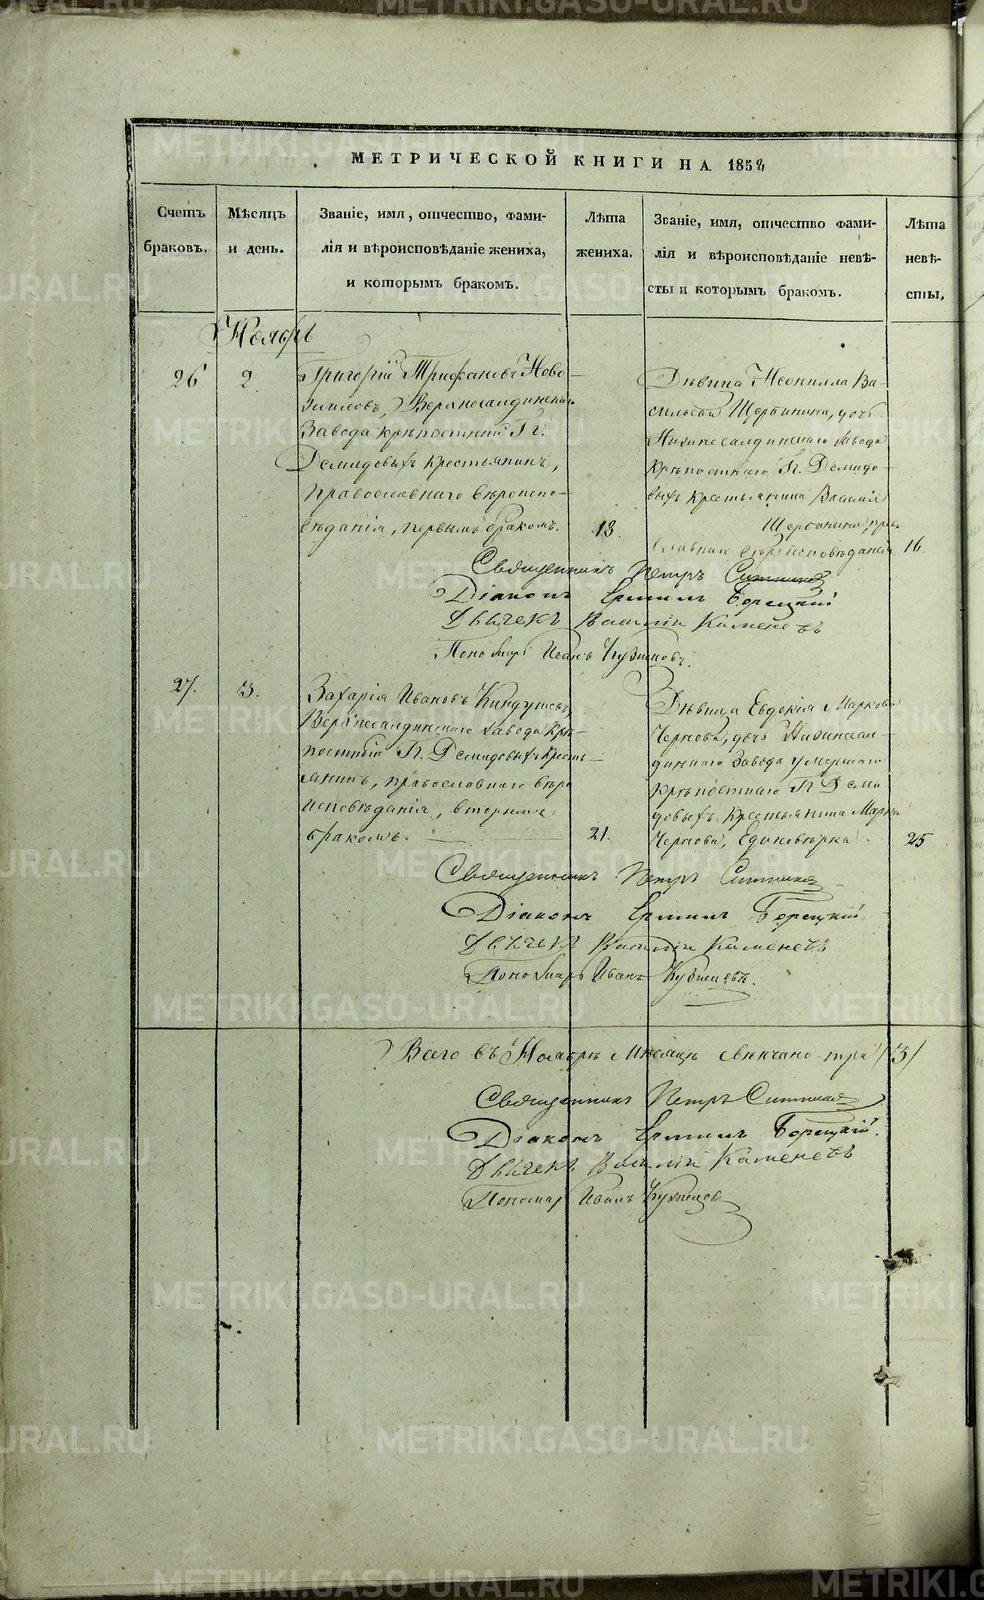 МЕТРИЧЕСКОЙ КНИГИ НА 1858
Счетъ браковъ.
Мѣсяцъ и день.
Званіе, имя, отчество, фами-
лія и вѣроисповѣданіе жениха,
и которымъ бракомъ.
Лѣта жениха.
Званіе, имя, отчество фами-
лія и вѣроисповѣданіе невѣ-
сты и которымъ бракомъ.
Лѣта невѣ-
сты.
Ноябрь
26
2
Григорій Трифановъ Ново-
Верхнесалдинскаго
Завода крѣпостный Гг.
Демидовыхъ крестьянинъ,
православнаго вѣроиспо-
вѣданія, первымъ бракомъ.
18.
Дѣвица Неонилла Ва-
сильева Щербинина, дочь
Нижнесалдинскаго Завода
крѣпостнаго Гг. Демидо-
выхъ крестьянина Василія
Щербинина, пра-
славнаго вѣроисповѣданія
16.
Священникъ Петръ
Діаконъ Ермилъ Борецкій
Дьячекъ Василій Каменевъ
Пономарь Иванъ Кузнецовъ.
27.
3.
Захарія Ивановъ
Верхнесалдинскаго Завода крѣ-
постный Гг. Демидовыхъ кресть-
янинъ, православнаго вѣро
исповѣданія, вторымъ
бракомъ.
21.
Дѣвица Евдокія Маркова
Чернова, дочь Нижнесал-
динскаго Завода умершаго
крѣпостнаго Гг Деми
довыхъ крестьянина Марка
Чернова, Единовѣрка.
25
Священникъ Петръ
Діаконъ Ермилъ Борецкій
Дьячекъ Василій Каменевъ
Пономарь Иванъ Кузнецовъ.
Всего въ Ноябрѣ Мѣсяцѣ вѣнчано три /3/
Священникъ Петръ
Діаконъ Ермилъ Борецкій.
Дьячекъ Василій Каменевъ
Пономарь Иванъ Кузнецовъ
METRIKI.GASO-URAL.RU